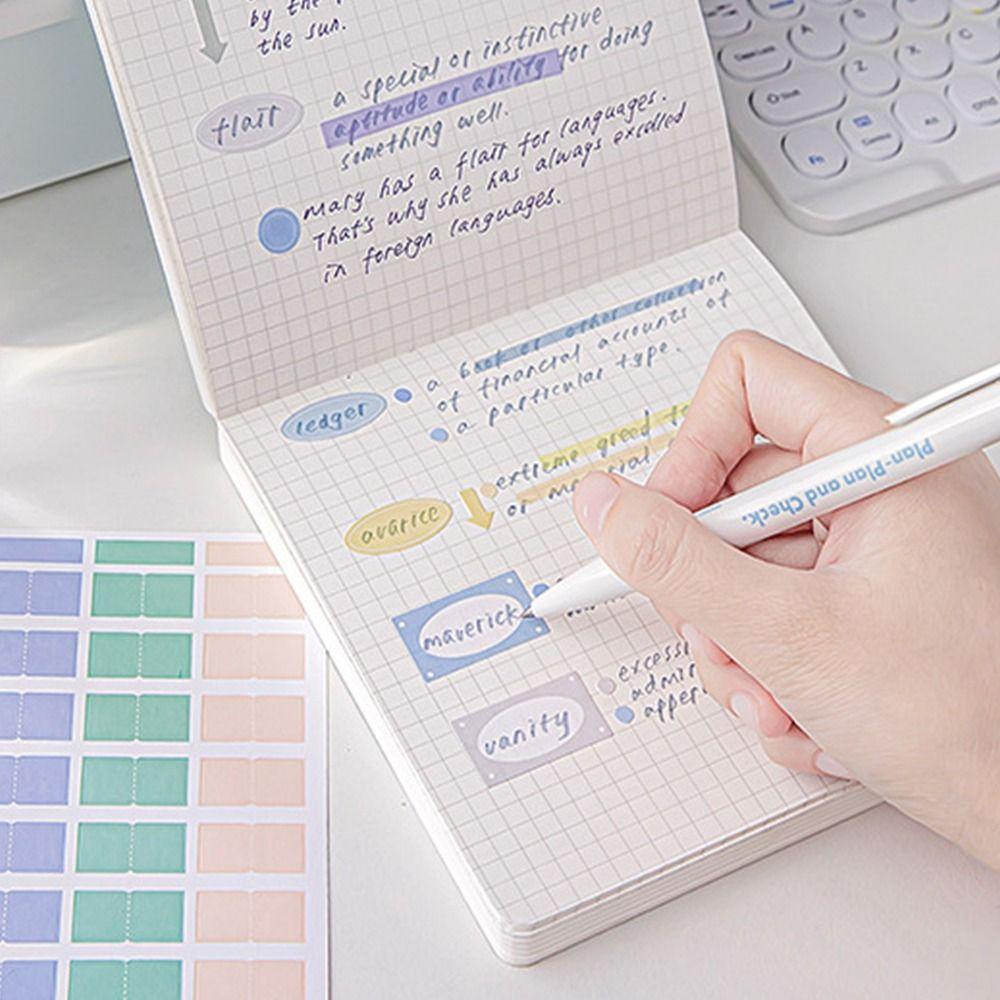 by the
the sun.
flair
a special or instinctive
aptitude or ability for doing
something well.
Mary has a flair for languages.
That's why she has always excelled
in foreign languages.
ledger
a book or other collection
of financial accounts of
a particular type.
avarice
extreme greed
or
maverick
vanity
excess
admir
apper
Plan-Plan and Check.
A
Z
X
C
Shift
Fn
Alt
cmd